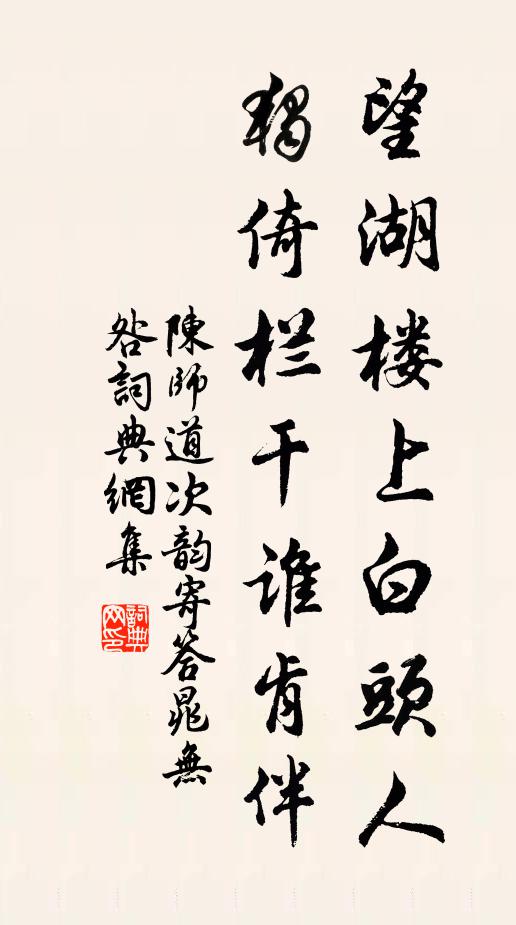 望湖楼上白頭人
獨倚栏干誰肯伴
陳師道次韵寄答晁無
咎詞典網集
詞典
网印